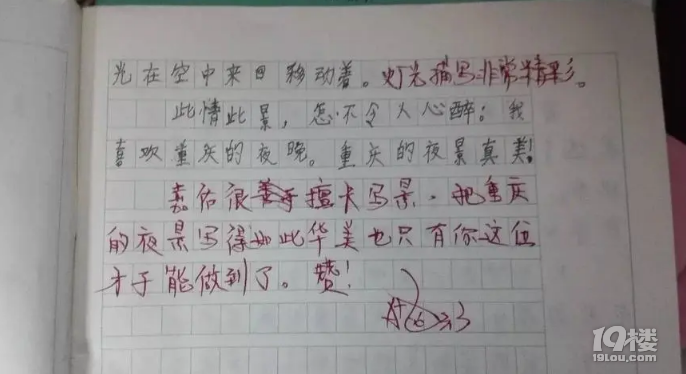 光在空中来回移动着。灯光描写非常精彩。
此情此景，怎不令人心醉：我
喜欢重庆的夜晚。重庆的夜景真美！
嘉佑很擅长写景．把重庆
的夜景写得如此华美也只有你这位
才子能做到了。赞！
19楼
19lou.com